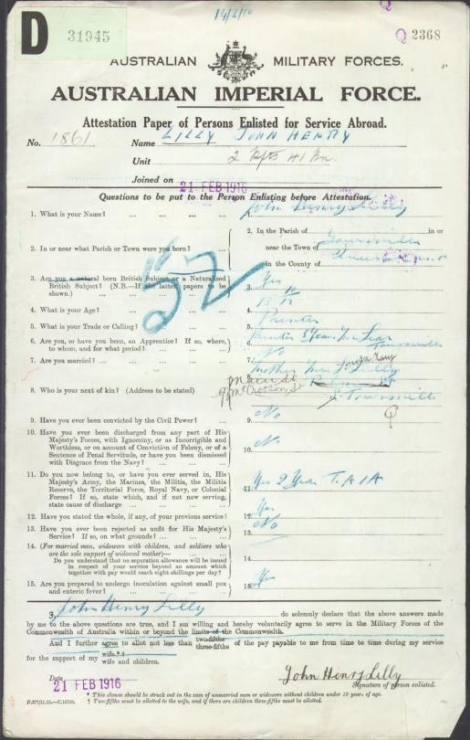 14/2/16
D 31945
Q 2368
AUSTRALIAN MILITARY FORCES.
AUSTRALIAN IMPERIAL FORCE.
Attestation Paper of Persons Enlisted for Service Abroad.
No. 1861 Name LILLY JOHN HENRY
Unit 2 Rfts 41 Bn.
Joined on 21 FEB 1916
Questions to be put to the Person Enlisting before Attestation.
1. What is your Name? ... 1. John Henry Lilly
2. In or near what Parish or Town were you born? ... 2. In the Parish of Townsville in or
near the Town of
in the County of
57
3. Are you a natural born British Subject or a Naturalised
British Subject? (N.B.—If the latter, papers to be
shown.) 3. Yes
4. What is your Age? 4. 18
5. What is your Trade or Calling? 5. Printer
6. Are you, or have you been, an Apprentice? If so, where,
to whom, and for what period? 6. Townsville
7. Are you married? 7. No
8. Who is your next of kin? (Address to be stated) 8. Mother Mrs Lilly
Townsville
9. Have you ever been convicted by the Civil Power? 9. No
10. Have you ever been discharged from any part of His
Majesty's Forces, with Ignominy, or as Incorrigible and
Worthless, or on account of Conviction of Felony, or of a
Sentence of Penal Servitude, or have you been dismissed
with Disgrace from the Navy? 10. No
11. Do you now belong to, or have you ever served in, His
Majesty's Army, the Marines, the Militia, the Militia
Reserve, the Territorial Force, Royal Navy, or Colonial
Forces? If so, state which, and if not now serving,
state cause of discharge 11. Yes 2 Years
12. Have you stated the whole, if any, of your previous service? 12. Yes
13. Have you ever been rejected as unfit for His Majesty's
Service? If so, on what grounds? 13. No
14. (For married men, widowers with children, and soldiers who
are the sole support of widowed mother)—
Do you understand that no separation allowance will be issued
in respect of your service beyond an amount which
together with pay would reach eight shillings per day? 14.
15. Are you prepared to undergo inoculation against small pox
and enteric fever? 15. Yes
I, John Henry Lilly do solemnly declare that the above answers made
by me to the above questions are true, and I am willing and hereby voluntarily agree to serve in the Military Forces of the
Commonwealth of Australia within or beyond the limits of the Commonwealth.
And I further agree to allot not less than two-fifths three-fifths of the pay payable to me from time to time during my service
for the support of my wife.* wife and children.
Date 21 FEB 1916 John Henry Lilly
Signature of person enlisted.
* This clause should be struck out in the case of unmarried men or widowers without children under 18 years of age.
† Two-fifths must be allotted to the wife, and if there are children three-fifths must be allotted.